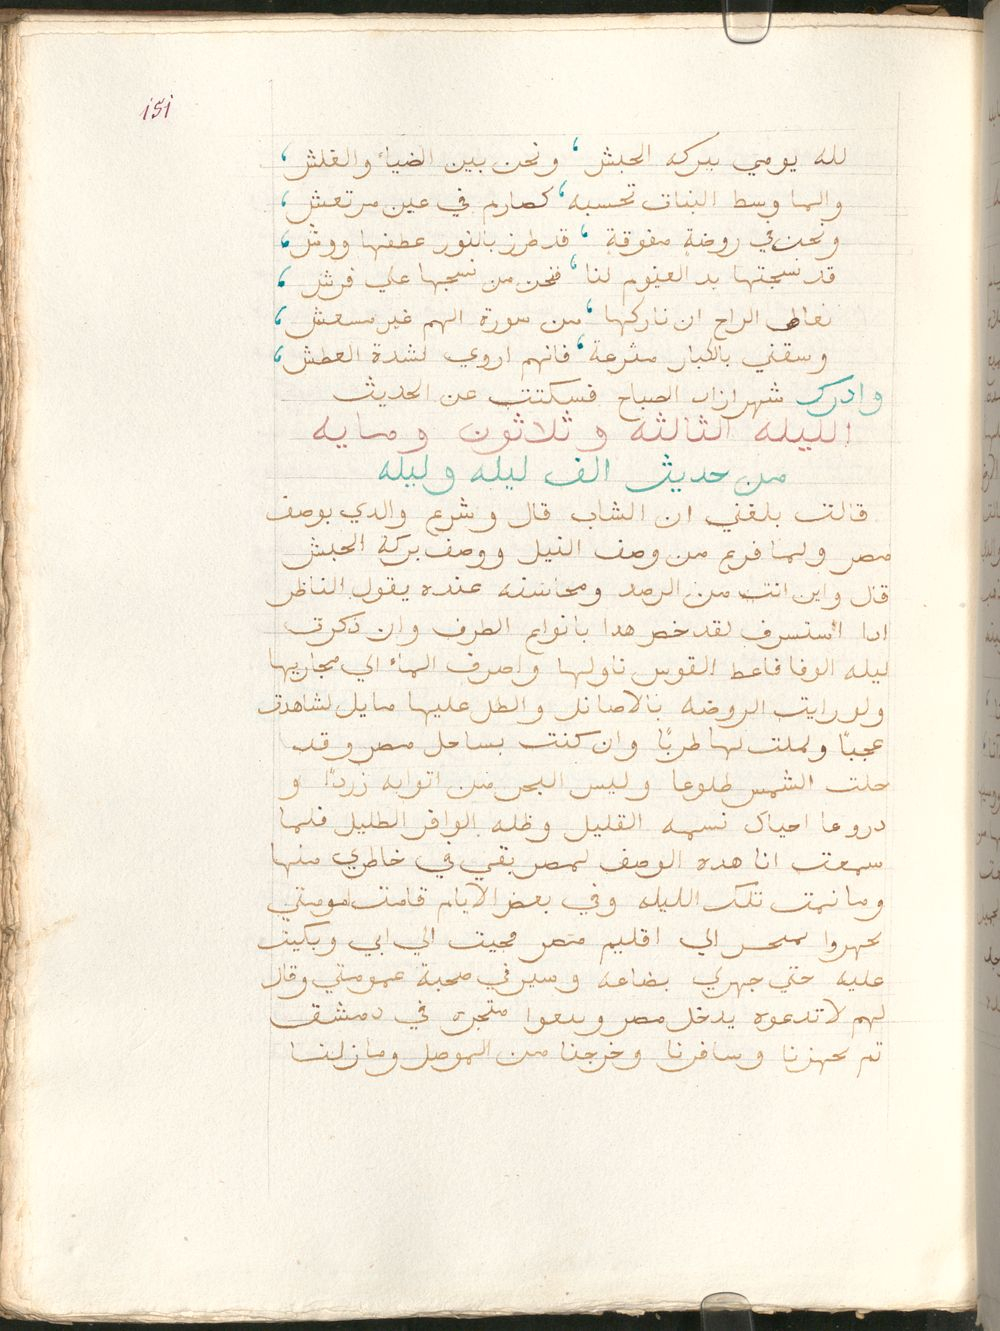 151
لله يومي ببركه الحبش ، ونحن بين الضياء والغلش ،
والما وسط النبات تحسبه ، كصارم في عين مرتعش ،
ونحن في روضة مفوقة ، قد طرز بالنور عطفها ووش ،
قد نسجتها يد الغيوم لنا ، فنحن من نسجها علي فرش ،
نعاطي الراح ان تاركها ، من سورة الهم غير مسعش ،
وسقني بالكبار مترعة ، فانهم اروي لشدة العطش ،
وادرك شهرازاد الصباح فسكتت عن الحديث
الليله الثالثه و ثلاثون ومايه
من حديث الف ليله وليله
قالت بلغني ان الشاب قال وشرع والدي بوصف
مصر ولما فرغ من وصف النيل ووصف بركة الحبش
قال واين انت من الرصد ومحاسنه عنده يقول الناظر
ادا استسرف لقد خص هدا بانواع الطرف وان ذكرت
ليله الوفا فاعط القوس ناولها واصرف الماء الي مجاريها
ولو رايت الروضه بالاصائل والظل عليها مايل لشاهدت
عجبًا ولملت لها طربًا وان كنت بساحل مصر وقد
حلت الشمس طلوعا وليس البحر من اتوابه زردًا و
دروعا احياك نسيمه القليل وظله الوافر الظليل فلما
سمعت انا هده الوصف لمصر بقي في خاطري منها
وما نمت تلك الليله وفي بعض الايام قامت مومتي
تجهروا الي اقليم مصر فجيت الي ابي وبكيت
عليه حتي جهرلي بضاعه وسيرني صحبة عمومتي وقال
لهم لا تدعوه يدخل مصر وبيعوا متجره في دمشق
تم تجهزنا وسافرنا وخرجنا من الموصل ومازلنا